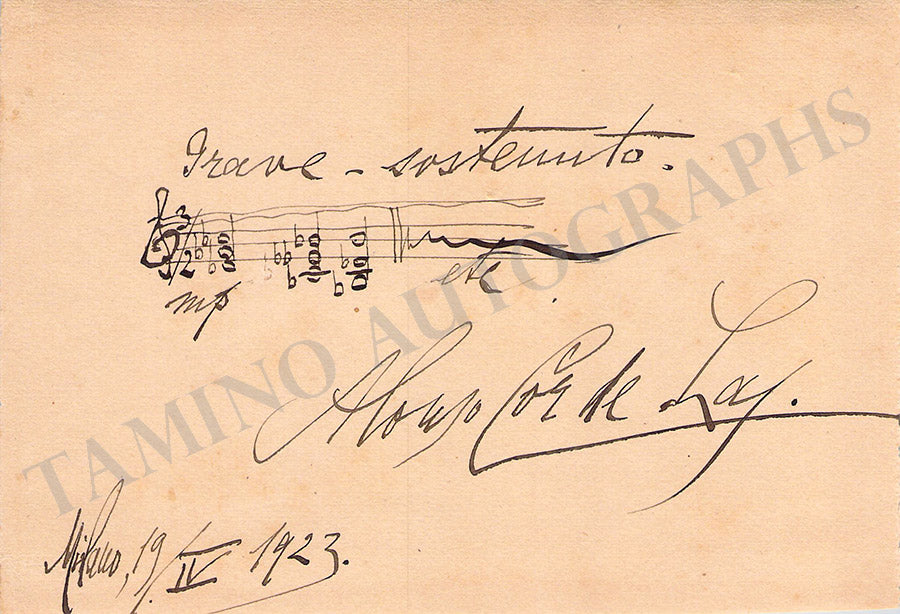 Grave - sostenuto.
3/2
mp
etc
Alonso Cor de Las.
Milano, 19/IV 1923.
TAMINO AUTOGRAPHS